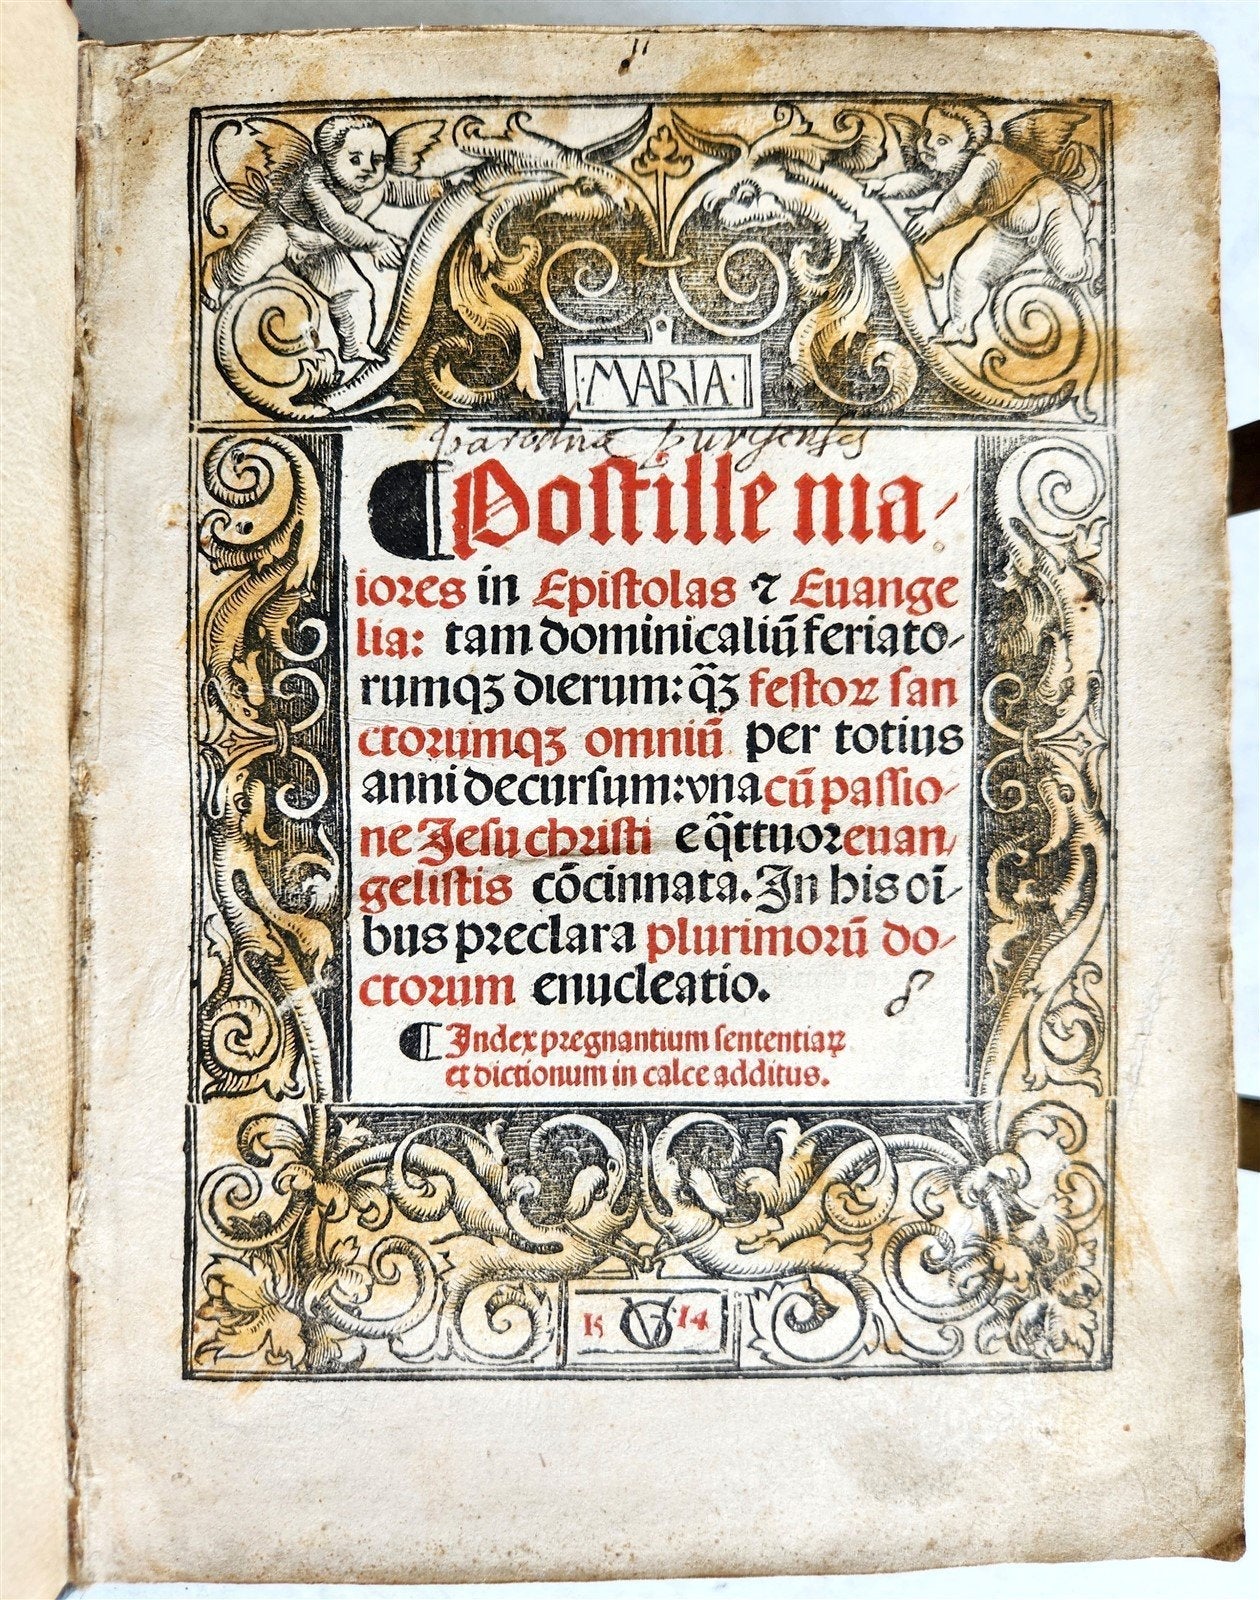 ·MARIA·
¶ Postille ma/
iores in Epistolas ⁊ Euange
lia: tam dominicaliū feriato/
rumqꝫ dierum: q̃ꝫ festoꝝ san
ctorumqꝫ omniū per totius
anni decursum: vna cū passio/
ne Jesu christi e q̃ttuor euan/
gelistis cōcinnata. In his oī/
bus preclara plurimorū do/
ctorum enucleatio.
¶ Index pregnantium sententiaꝝ
et dictionum in calce additus.
15 VG 14